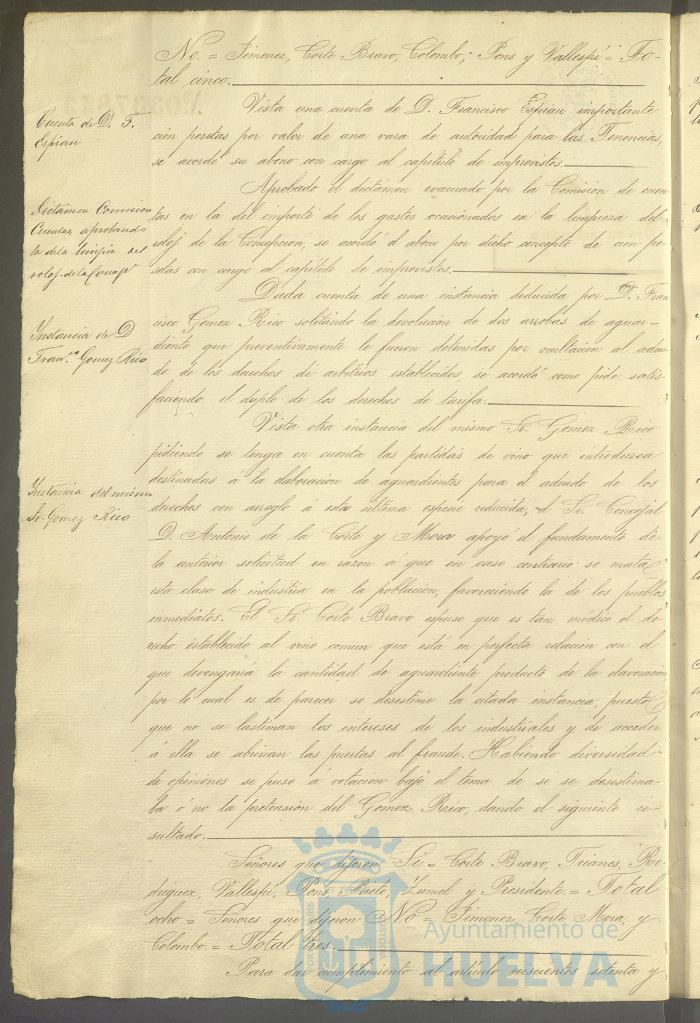 No. = Jimenez, Corte Bravo, Colombo; Pons y Vallespí = To-
tal cinco.
Cuenta de D. F.
Espiau
Vista una cuenta de D. Francisco Espiau importante
cien pesetas por valor de una vara de autoridad para las Tenencias,
se acordó su abono con cargo al capítulo de imprevistos.
Dictámen Comision
Cuentas aprobando
la de la limpia del
reloj de la Concepn
Aprobado el dictámen evacuado por la Comision de cuen-
tas en la del importe de los gastos ocacionados en la limpieza del
reloj de la Concepcion, se acordó el abono por dicho concepto de cien pe-
setas con cargo al capítulo de imprevistos.
Instancia de D
Fran.co Gomez Rico
Dada cuenta de una instancia deducida por D. Fran
cisco Gomez Rico solicitando la devolucion de dos arrobas de aguar-
diente que preventivamente le fueron detenidas por ocultacion al adeu-
do de los derechos de arbitrios establecidos se acordó como pide satis-
faciendo el duplo de los derechos de tarifa.
Instancia del mismo
Sr. Gomez Rico
Vista otra instancia del mismo Sr. Gomez Rico
pidiendo se tenga en cuenta las partidas de vino que introduzca
destinadas á la elaboracion de aguardientes para el adeudo de los
derechos con arreglo á esta última especie reducida, el Sr. Concejal
D. Antonio de la Corte y Mora apoyó el fundamento de
la anterior solicitud en razon á que en caso contrario se mata
esta clase de industria en la poblacion, favoreciendo la de los pueblos
inmediatos. El Sr. Corte Bravo espuso que es tan módico el de-
recho establecido al vino comun que está en perfecta relacion con el
que devengaria la cantidad de aguardiente producto de la elavoracion
por lo cual es de parecer se desestime la citada instancia, puesto
que no se lastiman los intereses de los industriales y de acceder
á ella se abririan las puertas al fraude. Habiendo diversidad
de opiniones se puso á votacion bajo el tema de si se desestima-
ba ó no la pretension del Gomez Rico, dando el siguiente re-
sultado.
Señores que dijeron Sí = Corte Bravo, Trianes, Ro-
driguez, Vallespí, Pons, Prieto, Zumel y Presidente. = Total
ocho = Señores que dijeron No = Jimenez, Corte Mora, y
Colombo. = Total tres.
Para dar cumplimiento al artículo seiscientos setenta y
Ayuntamiento de
HUELVA